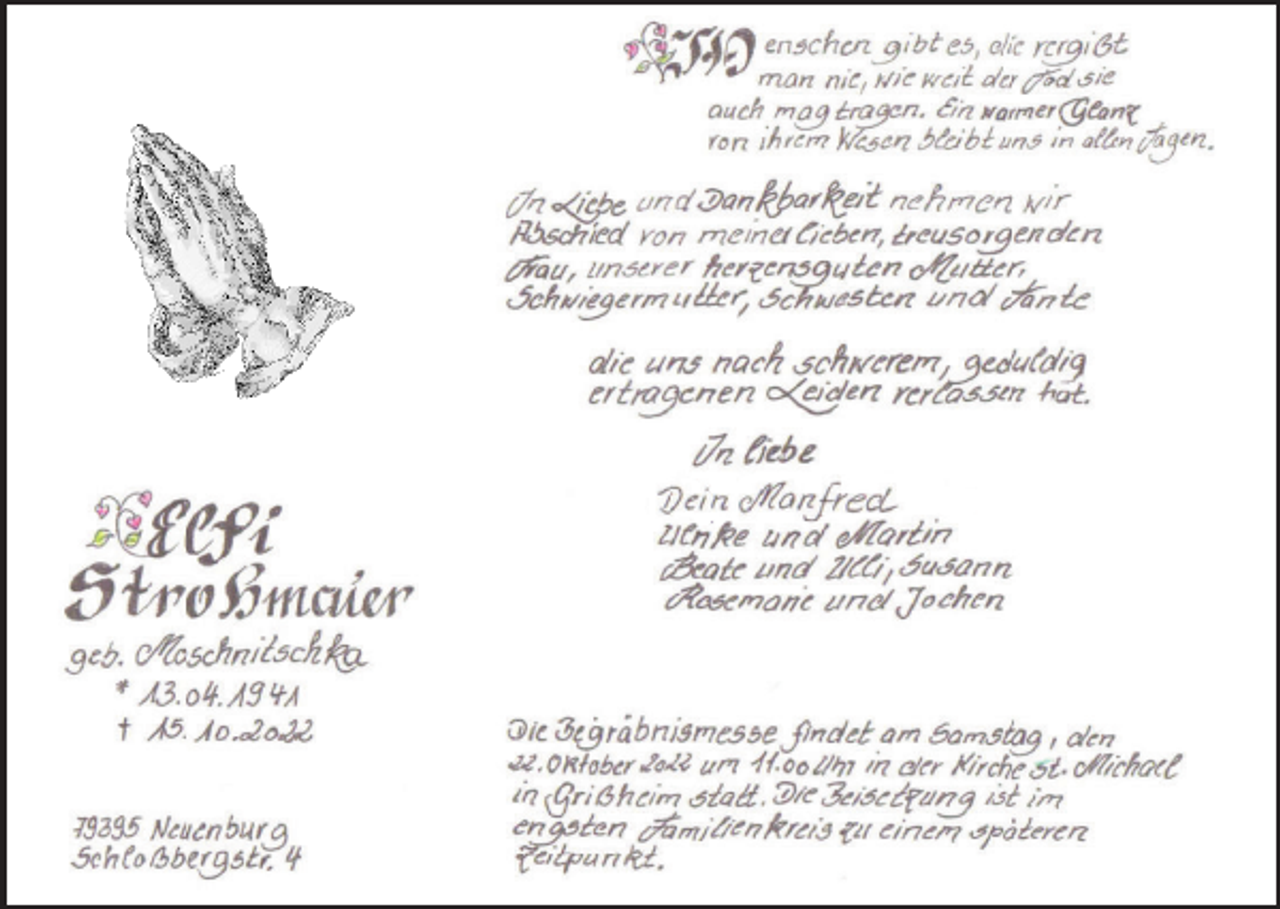 Menschen gibt es, die vergißt
man nie, wie weit der Tod sie
auch mag tragen. Ein warmer Glanz
von ihrem Wesen bleibt uns in allen Tagen.
In Liebe und Dankbarkeit nehmen wir
Abschied von meiner lieben, treusorgenden
Frau, unserer herzensguten Mutter,
Schwiegermutter, Schwester und Tante
die uns nach schwerem, geduldig
ertragenen Leiden verlassen hat.
In liebe
Dein Manfred
Ulrike und Martin
Beate und Ulli, Susann
Rosemarie und Jochen
Elfi
Stroßmaier
geb. Moschnitschka
* 13.04.1941
† 15.10.2022
79395 Neuenburg
Schloßbergstr. 4
Die Begräbnismesse findet am Samstag, den
22. Oktober 2022 um 11.00 Uhr in der Kirche St. Michael
in Grißheim statt. Die Beisetzung ist im
engsten Familienkreis zu einem späteren
Zeitpunkt.